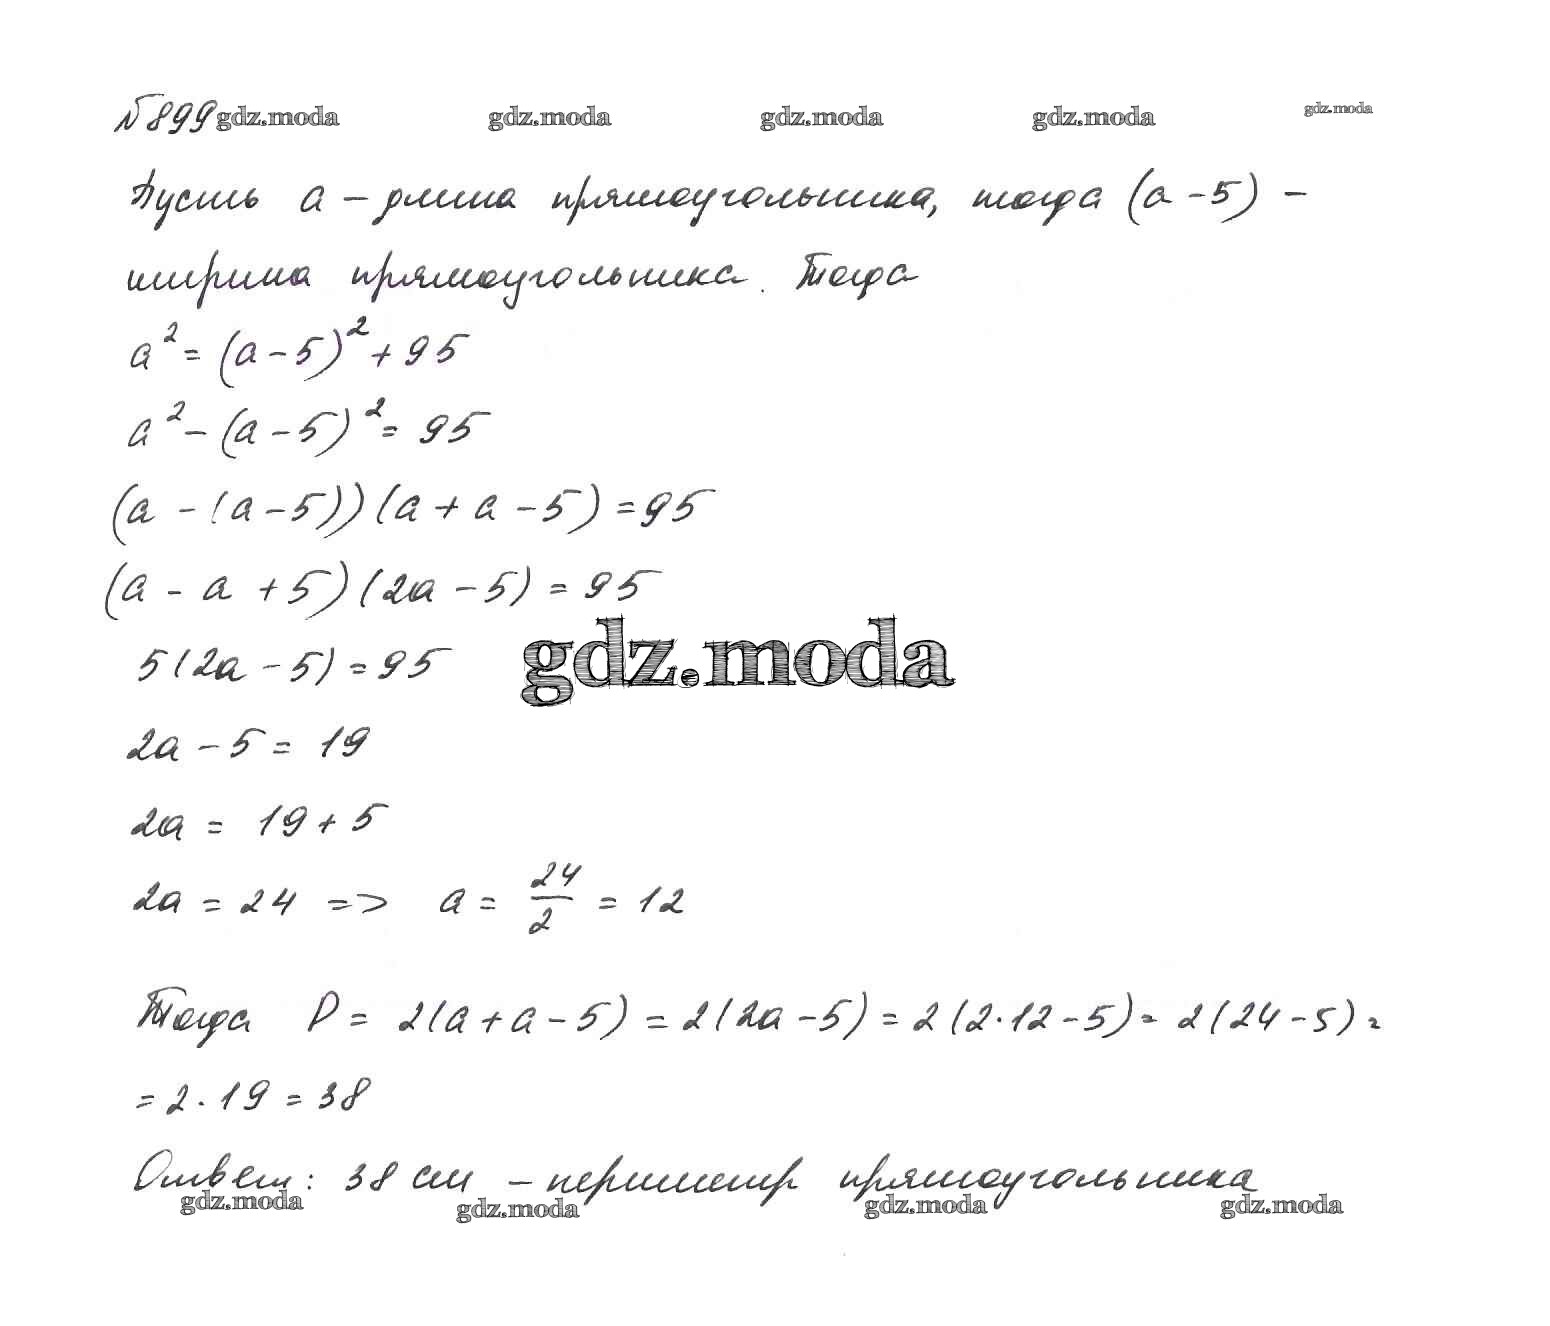 №899 gdz.moda gdz.moda gdz.moda gdz.moda gdz.moda
Пусть a – длина прямоугольника, тогда (a – 5) –
ширина прямоугольника. Тогда
a² = (a – 5)² + 95
a² – (a – 5)² = 95
(a – (a – 5))(a + a – 5) = 95
(a – a + 5)(2a – 5) = 95
5(2a – 5) = 95
gdz.moda
2a – 5 = 19
2a = 19 + 5
2a = 24 => a = 24/2 = 12
Тогда P = 2(a + a – 5) = 2(2a – 5) = 2(2·12 – 5) = 2(24 – 5) =
= 2·19 = 38
Ответ: 38 см – периметр прямоугольника
gdz.moda gdz.moda gdz.moda gdz.moda